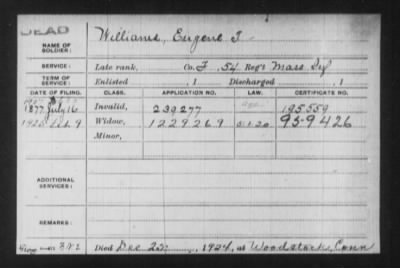 DEAD
NAME OF SOLDIER: Williams, Eugene
SERVICE: Late rank, Co. F, 54 Reg't Mass Inf
TERM OF SERVICE: Enlisted , 1 Discharged , 1
DATE OF FILING. CLASS. APPLICATION NO. LAW. CERTIFICATE NO.
1877 July 16 Invalid, 239277 195559
Feb. 9 Widow, 1229269 5.1.20 959426
Minor,
ADDITIONAL SERVICES:
REMARKS:
Died Dec 1924, at Woodstock, Conn